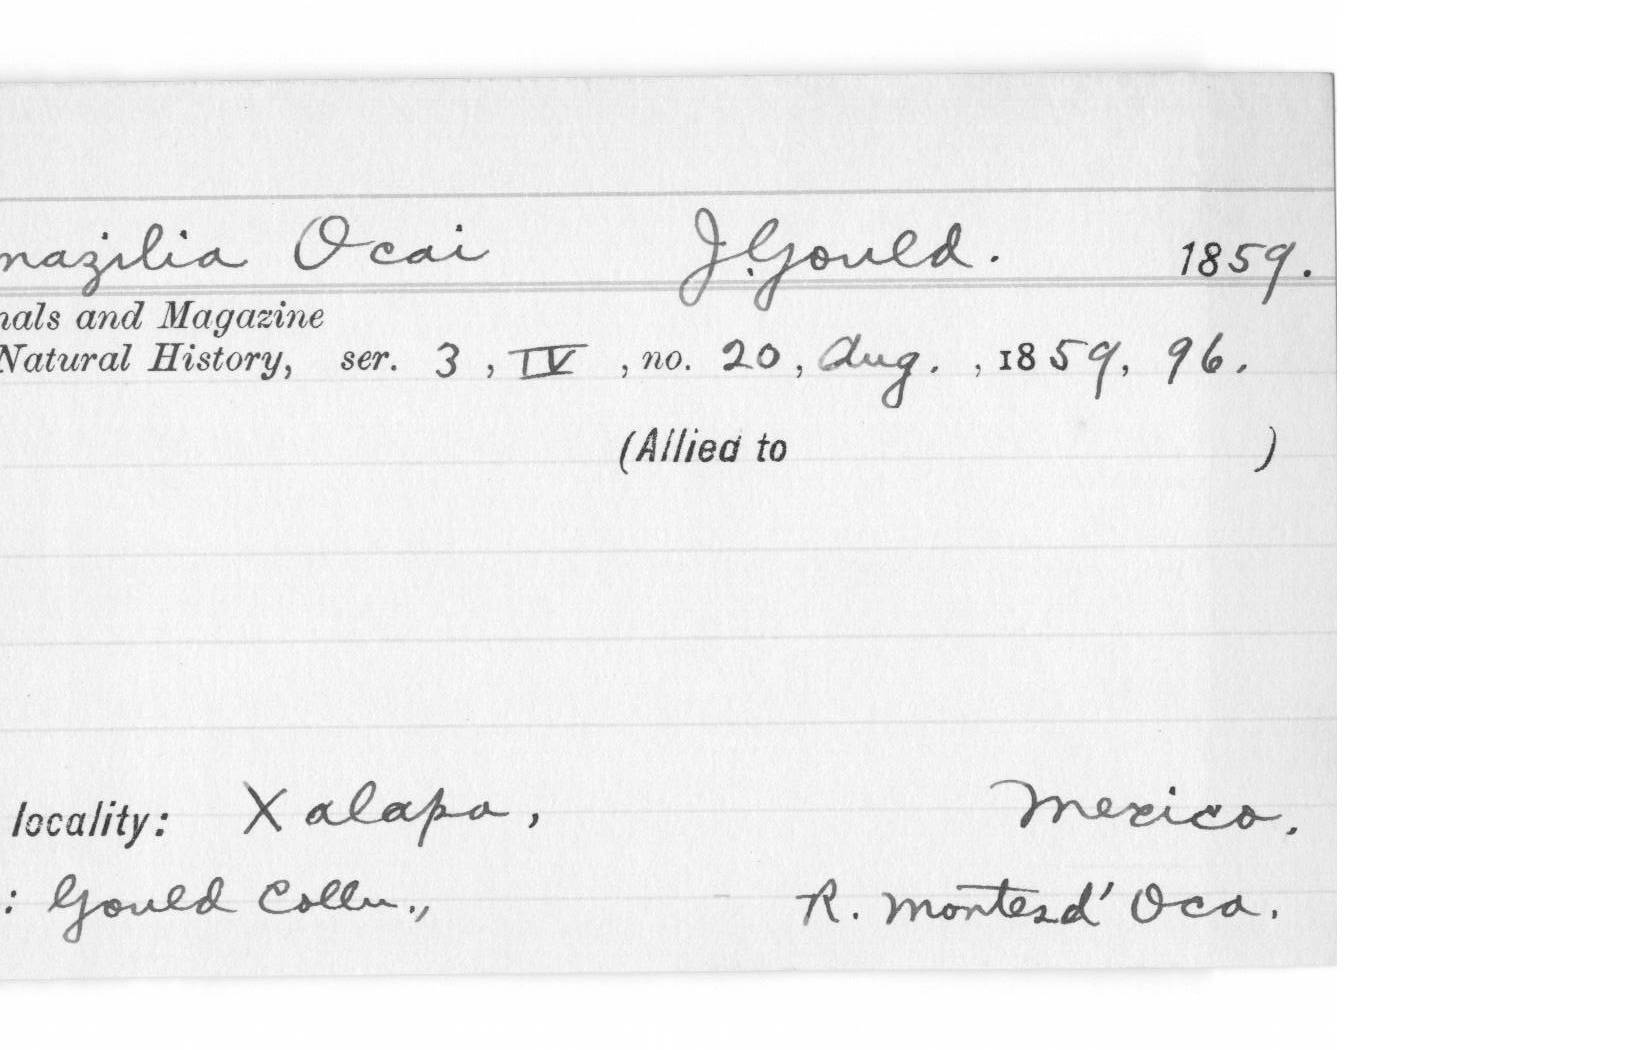 mazilia Ocai J. Gould. 1859.
nals and Magazine
Natural History, ser. 3, IV, no. 20, Aug., 1859, 96.
(Allied to )
locality: Xalapa, Mexico.
: Gould Colln., R. Montes d' Oca.